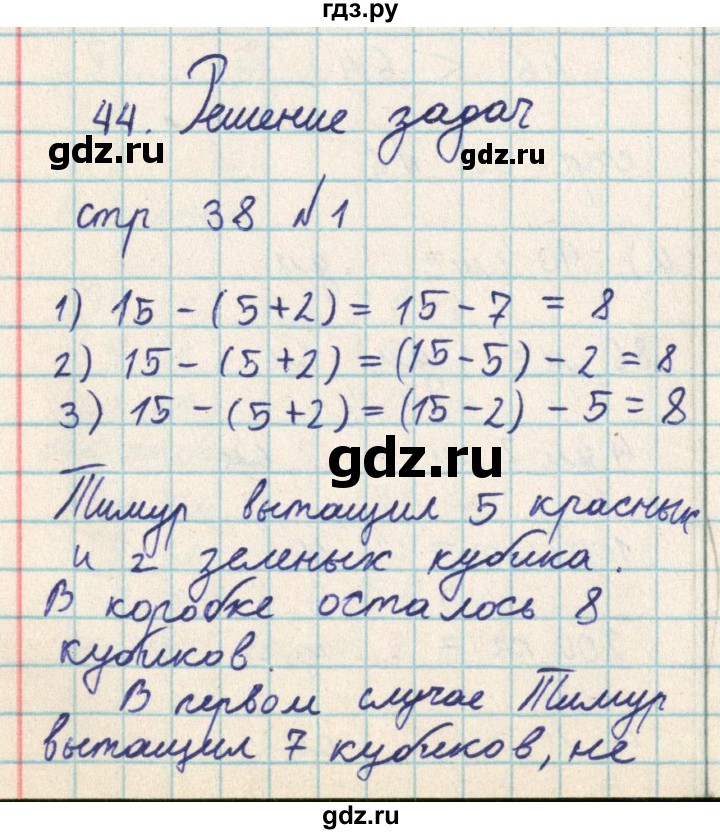 гдз.ру
44. Решение задач
gdz.ru
gdz.ru
стр 38 №1
1) 15 - (5+2) = 15 - 7 = 8
2) 15 - (5+2) = (15-5) - 2 = 8
3) 15 - (5+2) = (15-2) - 5 = 8
gdz.ru
Тимур вытащил 5 красных
и 2 зеленых кубика.
В коробке осталось 8
кубиков.
В первом случае Тимур
вытащил 7 кубиков, не
gdz.ru